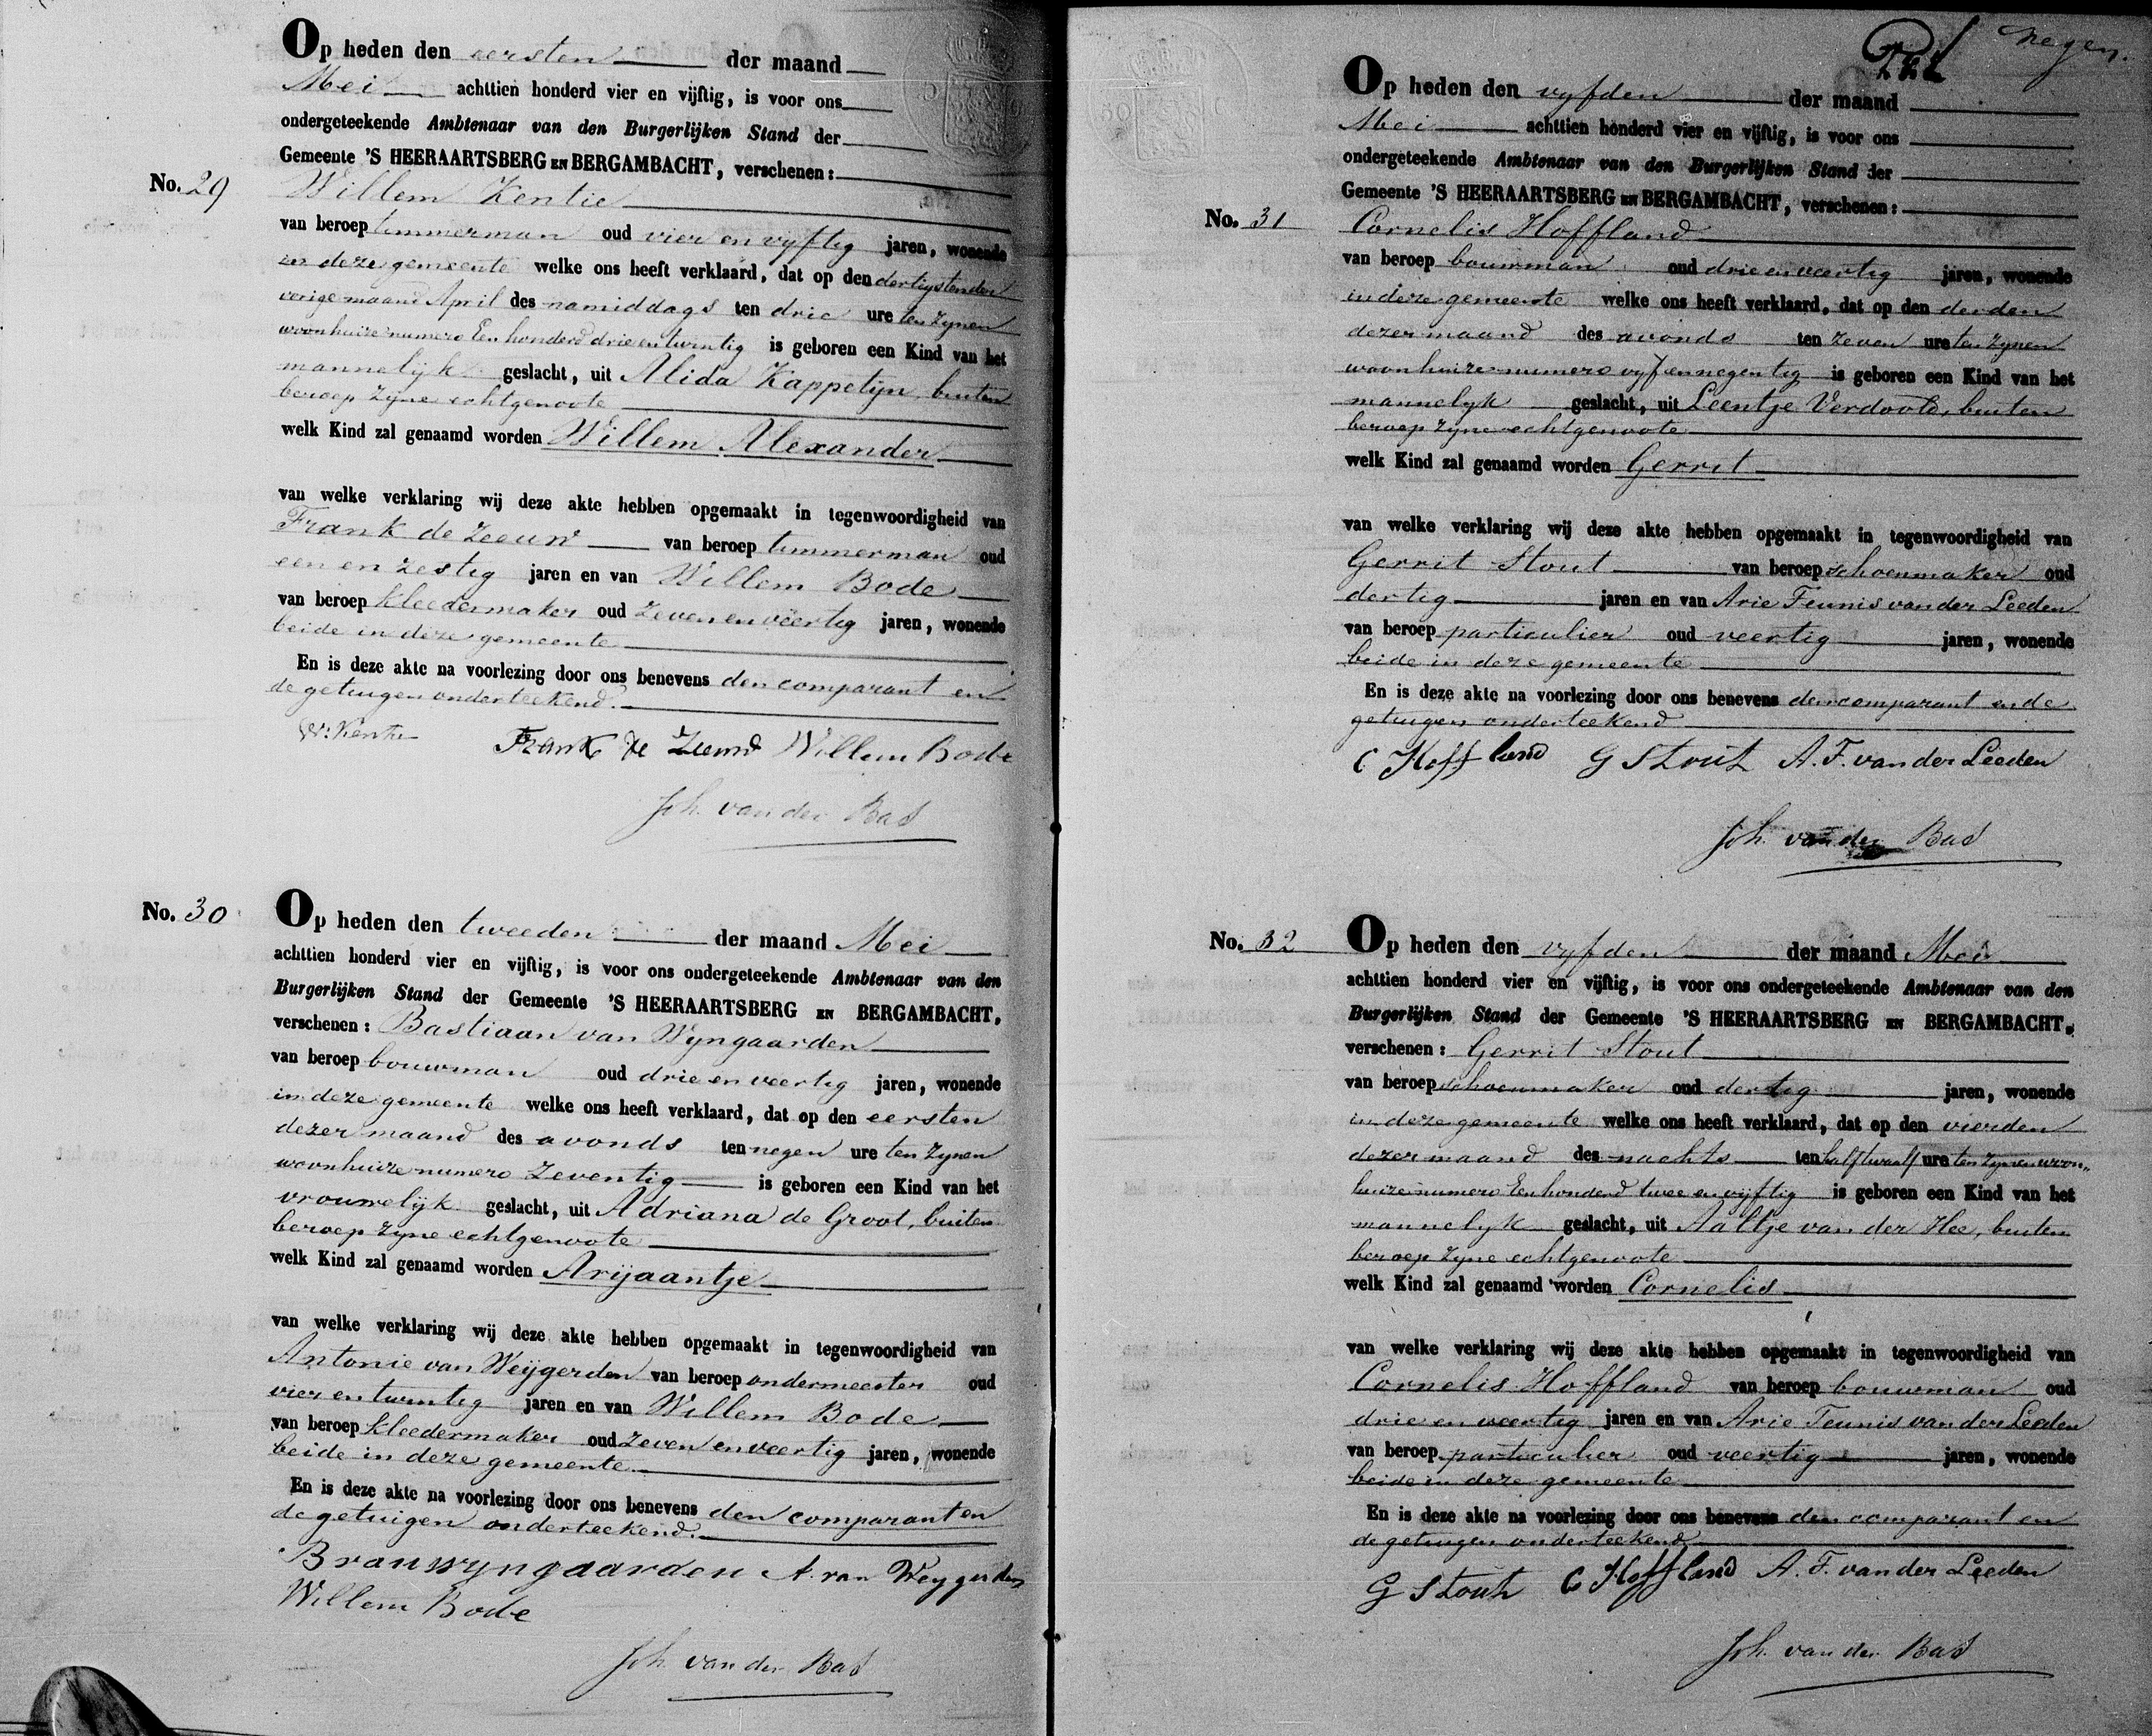 Op heden den eersten der maand
Mei achttien honderd vier en vijftig, is voor ons
ondergeteekende Ambtenaar van den Burgerlijken Stand der
Gemeente 'S HEERAARTSBERG EN BERGAMBACHT, verschenen:
No. 29 Willem Kentie
van beroep timmerman oud vier en vyftig jaren, wonende
in deze gemeente welke ons heeft verklaard, dat op den dertigsten der
vorige maand April des namiddags ten drie ure ten zynen
woonhuize numero Een honderd drie en twintig is geboren een Kind van het
mannelijk geslacht, uit Alida Kappetijn, buiten
beroep zyne echtgenoote
welk Kind zal genaamd worden Willem Alexander
van welke verklaring wij deze akte hebben opgemaakt in tegenwoordigheid van
Frank de Zeeuw van beroep timmerman oud
een en zestig jaren en van Willem Bode
van beroep kleedermaker oud zeven en veertig jaren, wonende
beide in deze gemeente
En is deze akte na voorlezing door ons benevens den comparant en
de getuigen onderteekend.
W: Kentie Frank de Zeeuw Willem Bode
Joh. van der Bas
No. 30 Op heden den tweeden der maand Mei
achttien honderd vier en vijftig, is voor ons ondergeteekende Ambtenaar van den
Burgerlijken Stand der Gemeente 'S HEERAARTSBERG EN BERGAMBACHT,
verschenen: Bastiaan van Wyngaarden
van beroep bouwman oud drie en veertig jaren, wonende
in deze gemeente welke ons heeft verklaard, dat op den eersten
dezer maand des avonds ten negen ure ten zynen
woonhuize numero zeventig is geboren een Kind van het
vrouwelijk geslacht, uit Adriana de Groot, buiten
beroep zyne echtgenoote
welk Kind zal genaamd worden Arijaantje
van welke verklaring wij deze akte hebben opgemaakt in tegenwoordigheid van
Antonie van Weijgerden van beroep ondermeester oud
vier en twintig jaren en van Willem Bode
van beroep kleedermaker oud zeven en veertig jaren, wonende
beide in deze gemeente
En is deze akte na voorlezing door ons benevens den comparant en
de getuigen onderteekend.
B van wyngaarden A. van Weygerden
Willem Bode
Joh. van der Bas
negen.
Op heden den vyfden der maand
Mei achttien honderd vier en vijftig, is voor ons
ondergeteekende Ambtenaar van den Burgerlijken Stand der
Gemeente 'S HEERAARTSBERG EN BERGAMBACHT, verschenen:
No. 31 Cornelis Hoffland
van beroep bouwman oud drie en veertig jaren, wonende
in deze gemeente welke ons heeft verklaard, dat op den derden
dezer maand des avonds ten zeven ure ten zynen
woonhuize numero vyf en negentig is geboren een Kind van het
mannelyk geslacht, uit Leentje Verdoold, buiten
beroep zyne echtgenoote
welk Kind zal genaamd worden Gerrit
van welke verklaring wij deze akte hebben opgemaakt in tegenwoordigheid van
Gerrit Stout van beroep schoenmaker oud
dertig jaren en van Arie Teunis van der Leeden
van beroep particulier oud veertig jaren, wonende
beide in deze gemeente
En is deze akte na voorlezing door ons benevens den comparant en de
getuigen onderteekend
C Hoffland G Stout A. T. van der Leeden
Joh. van der Bas
No. 32 Op heden den vyfden der maand Mei
achttien honderd vier en vijftig, is voor ons ondergeteekende Ambtenaar van den
Burgerlijken Stand der Gemeente 'S HEERAARTSBERG EN BERGAMBACHT,
verschenen: Gerrit Stout
van beroep schoenmaker oud dertig jaren, wonende
in deze gemeente welke ons heeft verklaard, dat op den vierden
dezer maand des nachts ten half twaalf ure ten zynen woon„
huize numero Een honderd twee en vijftig is geboren een Kind van het
mannelyk geslacht, uit Aaltje van der Hee, buiten
beroep zyne echtgenoote
welk Kind zal genaamd worden Cornelis
van welke verklaring wij deze akte hebben opgemaakt in tegenwoordigheid van
Cornelis Hoffland van beroep bouwman oud
drie en veertig jaren en van Arie Teunis van der Leeden
van beroep particulier oud veertig jaren, wonende
beide in deze gemeente
En is deze akte na voorlezing door ons benevens den comparant en
de getuigen onderteekend
G Stout C Hoffland A. T. van der Leeden
Joh. van der Bas